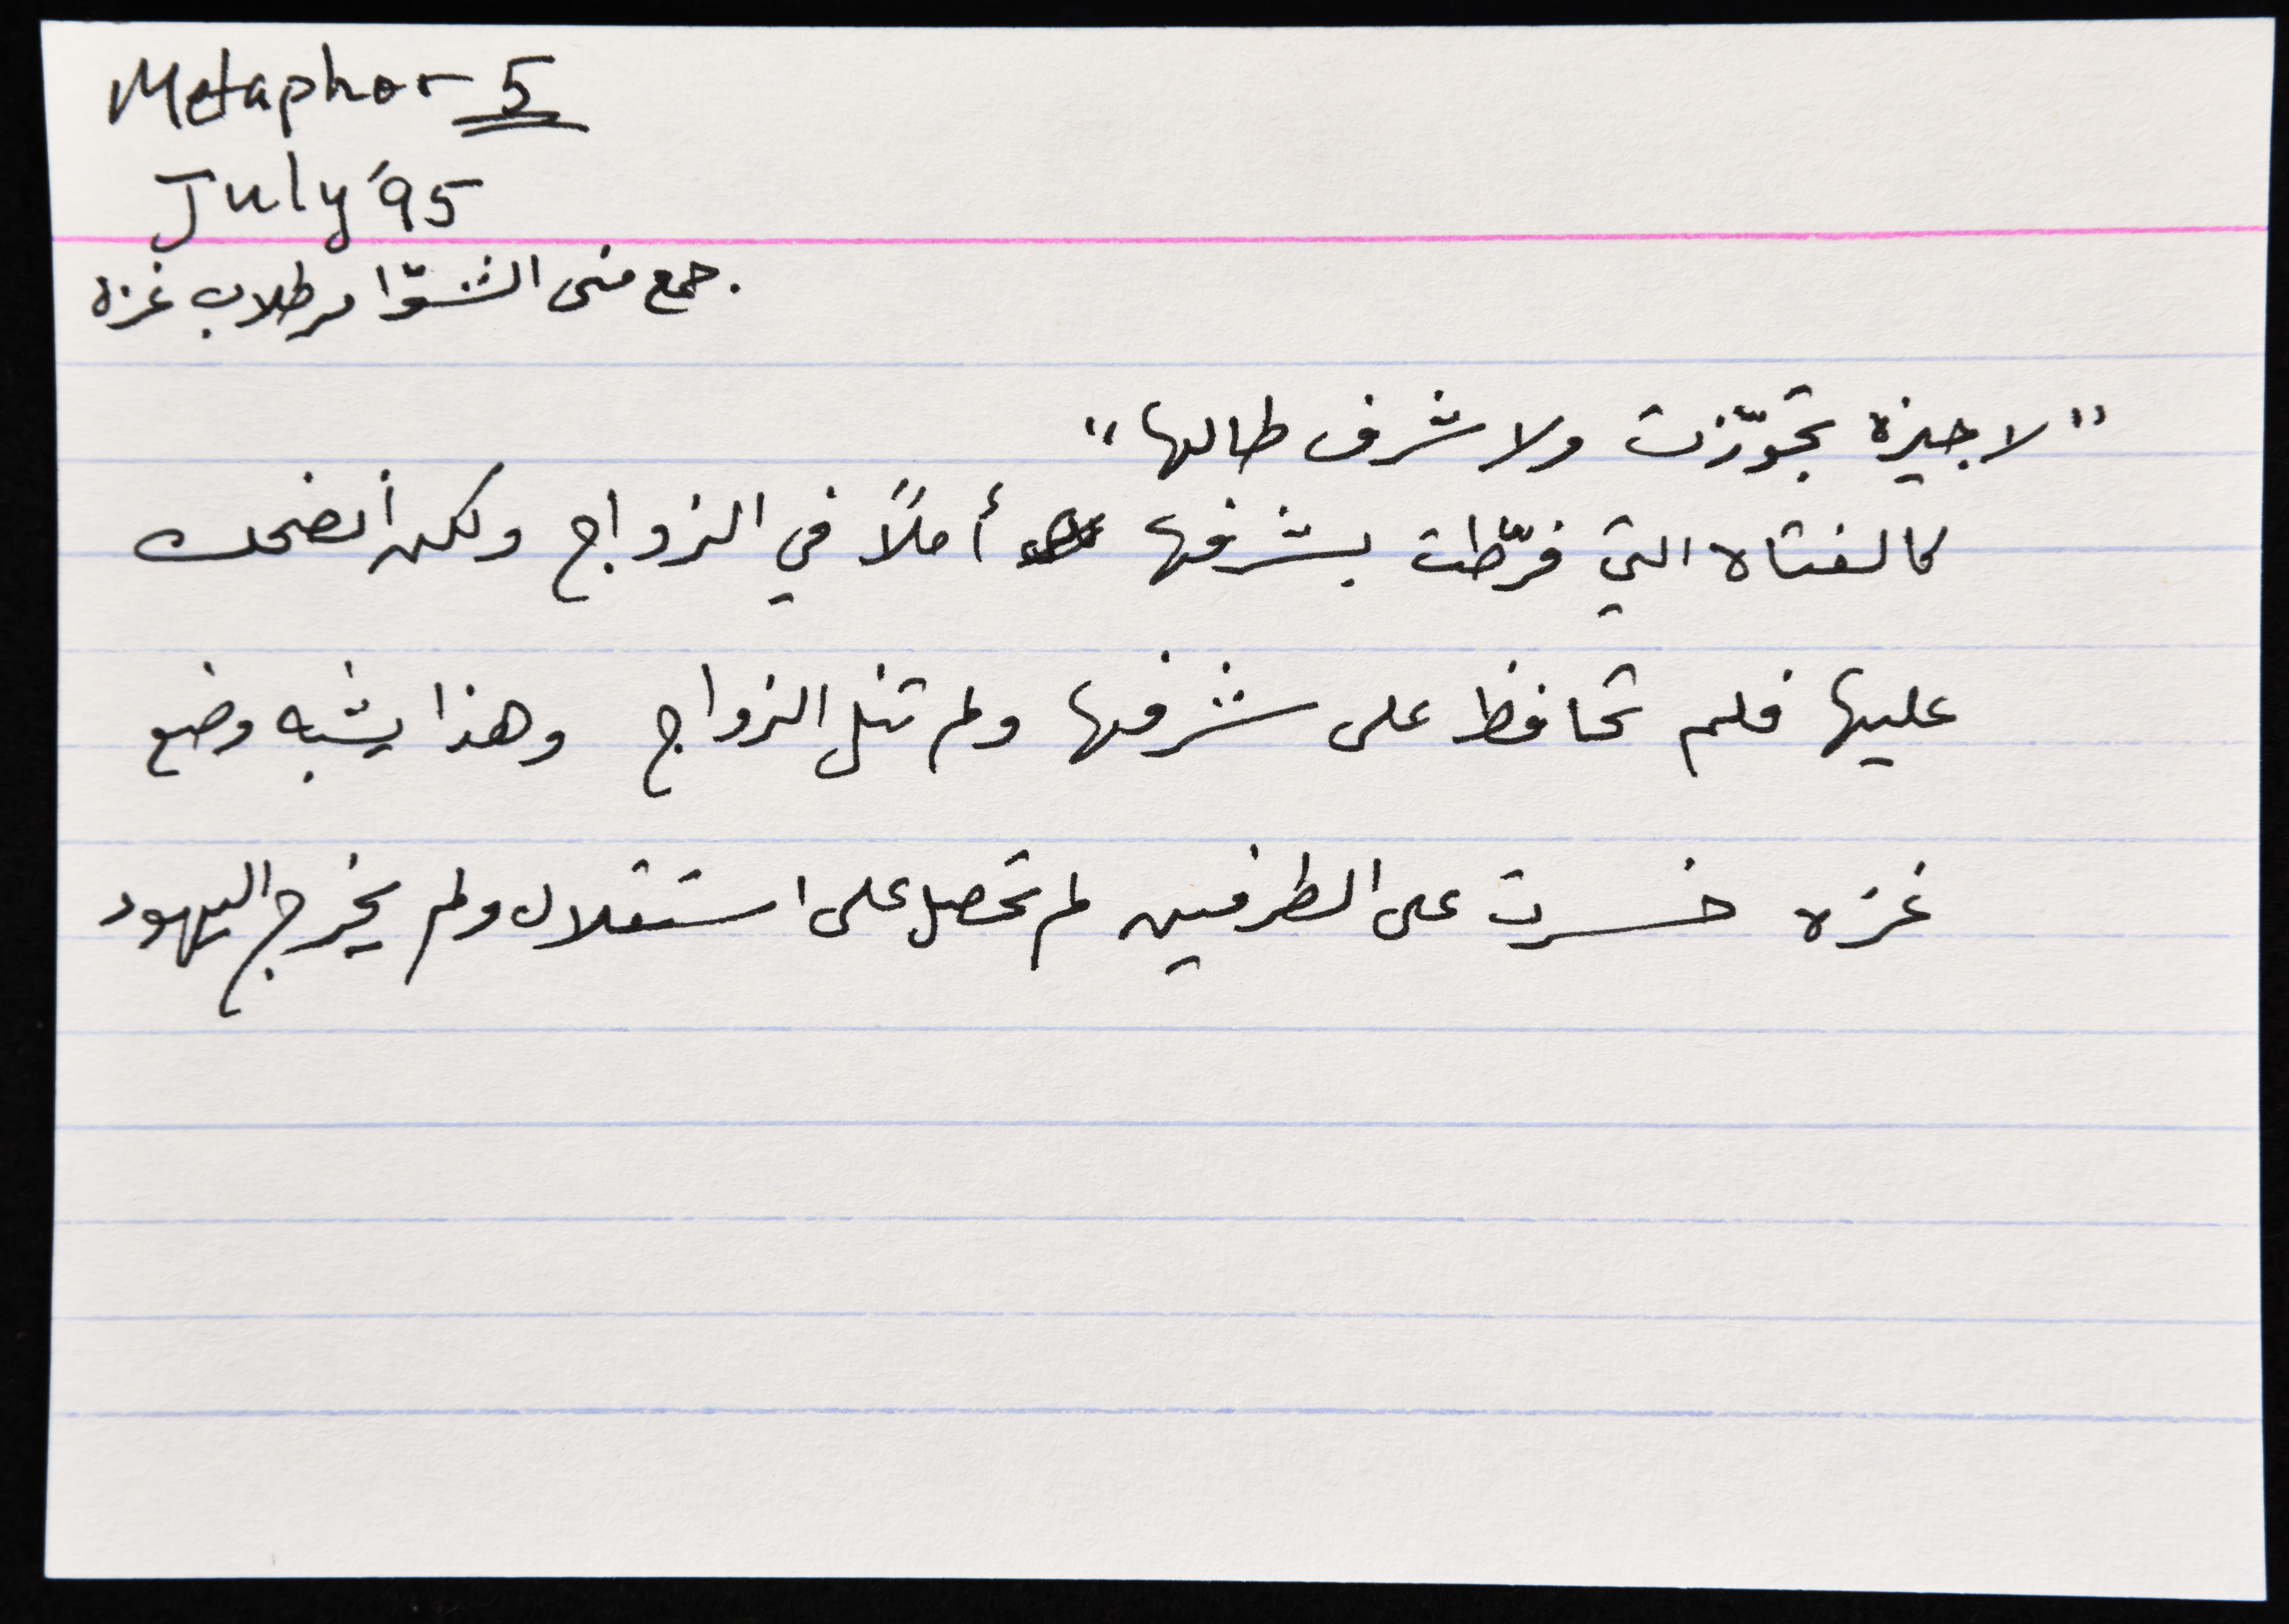 Metaphor 5
July '95
جمع منى الشوّا من طلاب غزة.
"لا جيزة تجوّزت ولا شرف طالها"
كالفتاه التي فرّطت بشرفها أملاً في الزواج ولكن أنضحك
عليها فلم تحافظ على شرفها ولم تنل الزواج وهذا يشبه وضع
غزه خسرت على الطرفين لم تحصل على استقلال ولم يخرج اليهود